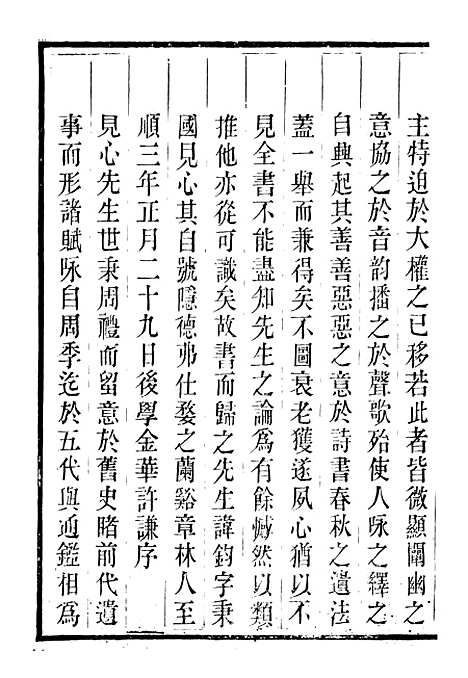 主特迫於大權之已移若此者皆微顯闡幽之
意協之於音韵播之於聲歌殆使人咏之繹之
自興起其善善惡惡之意於詩書春秋之遺法
蓋一舉而兼得矣不圖衰老獲遂夙心猶以不
見全書不能盡知先生之論爲有餘憾然以類
推他亦從可識矣故書而歸之先生諱鈞字秉
國見心其自號隱德弗仕婺之蘭谿章林人至
順三年正月二十九日後學金華許謙序
見心先生世秉周禮而留意於舊史睹前代遺
事而形諸賦咏自周季迄於五代與通鑑相爲